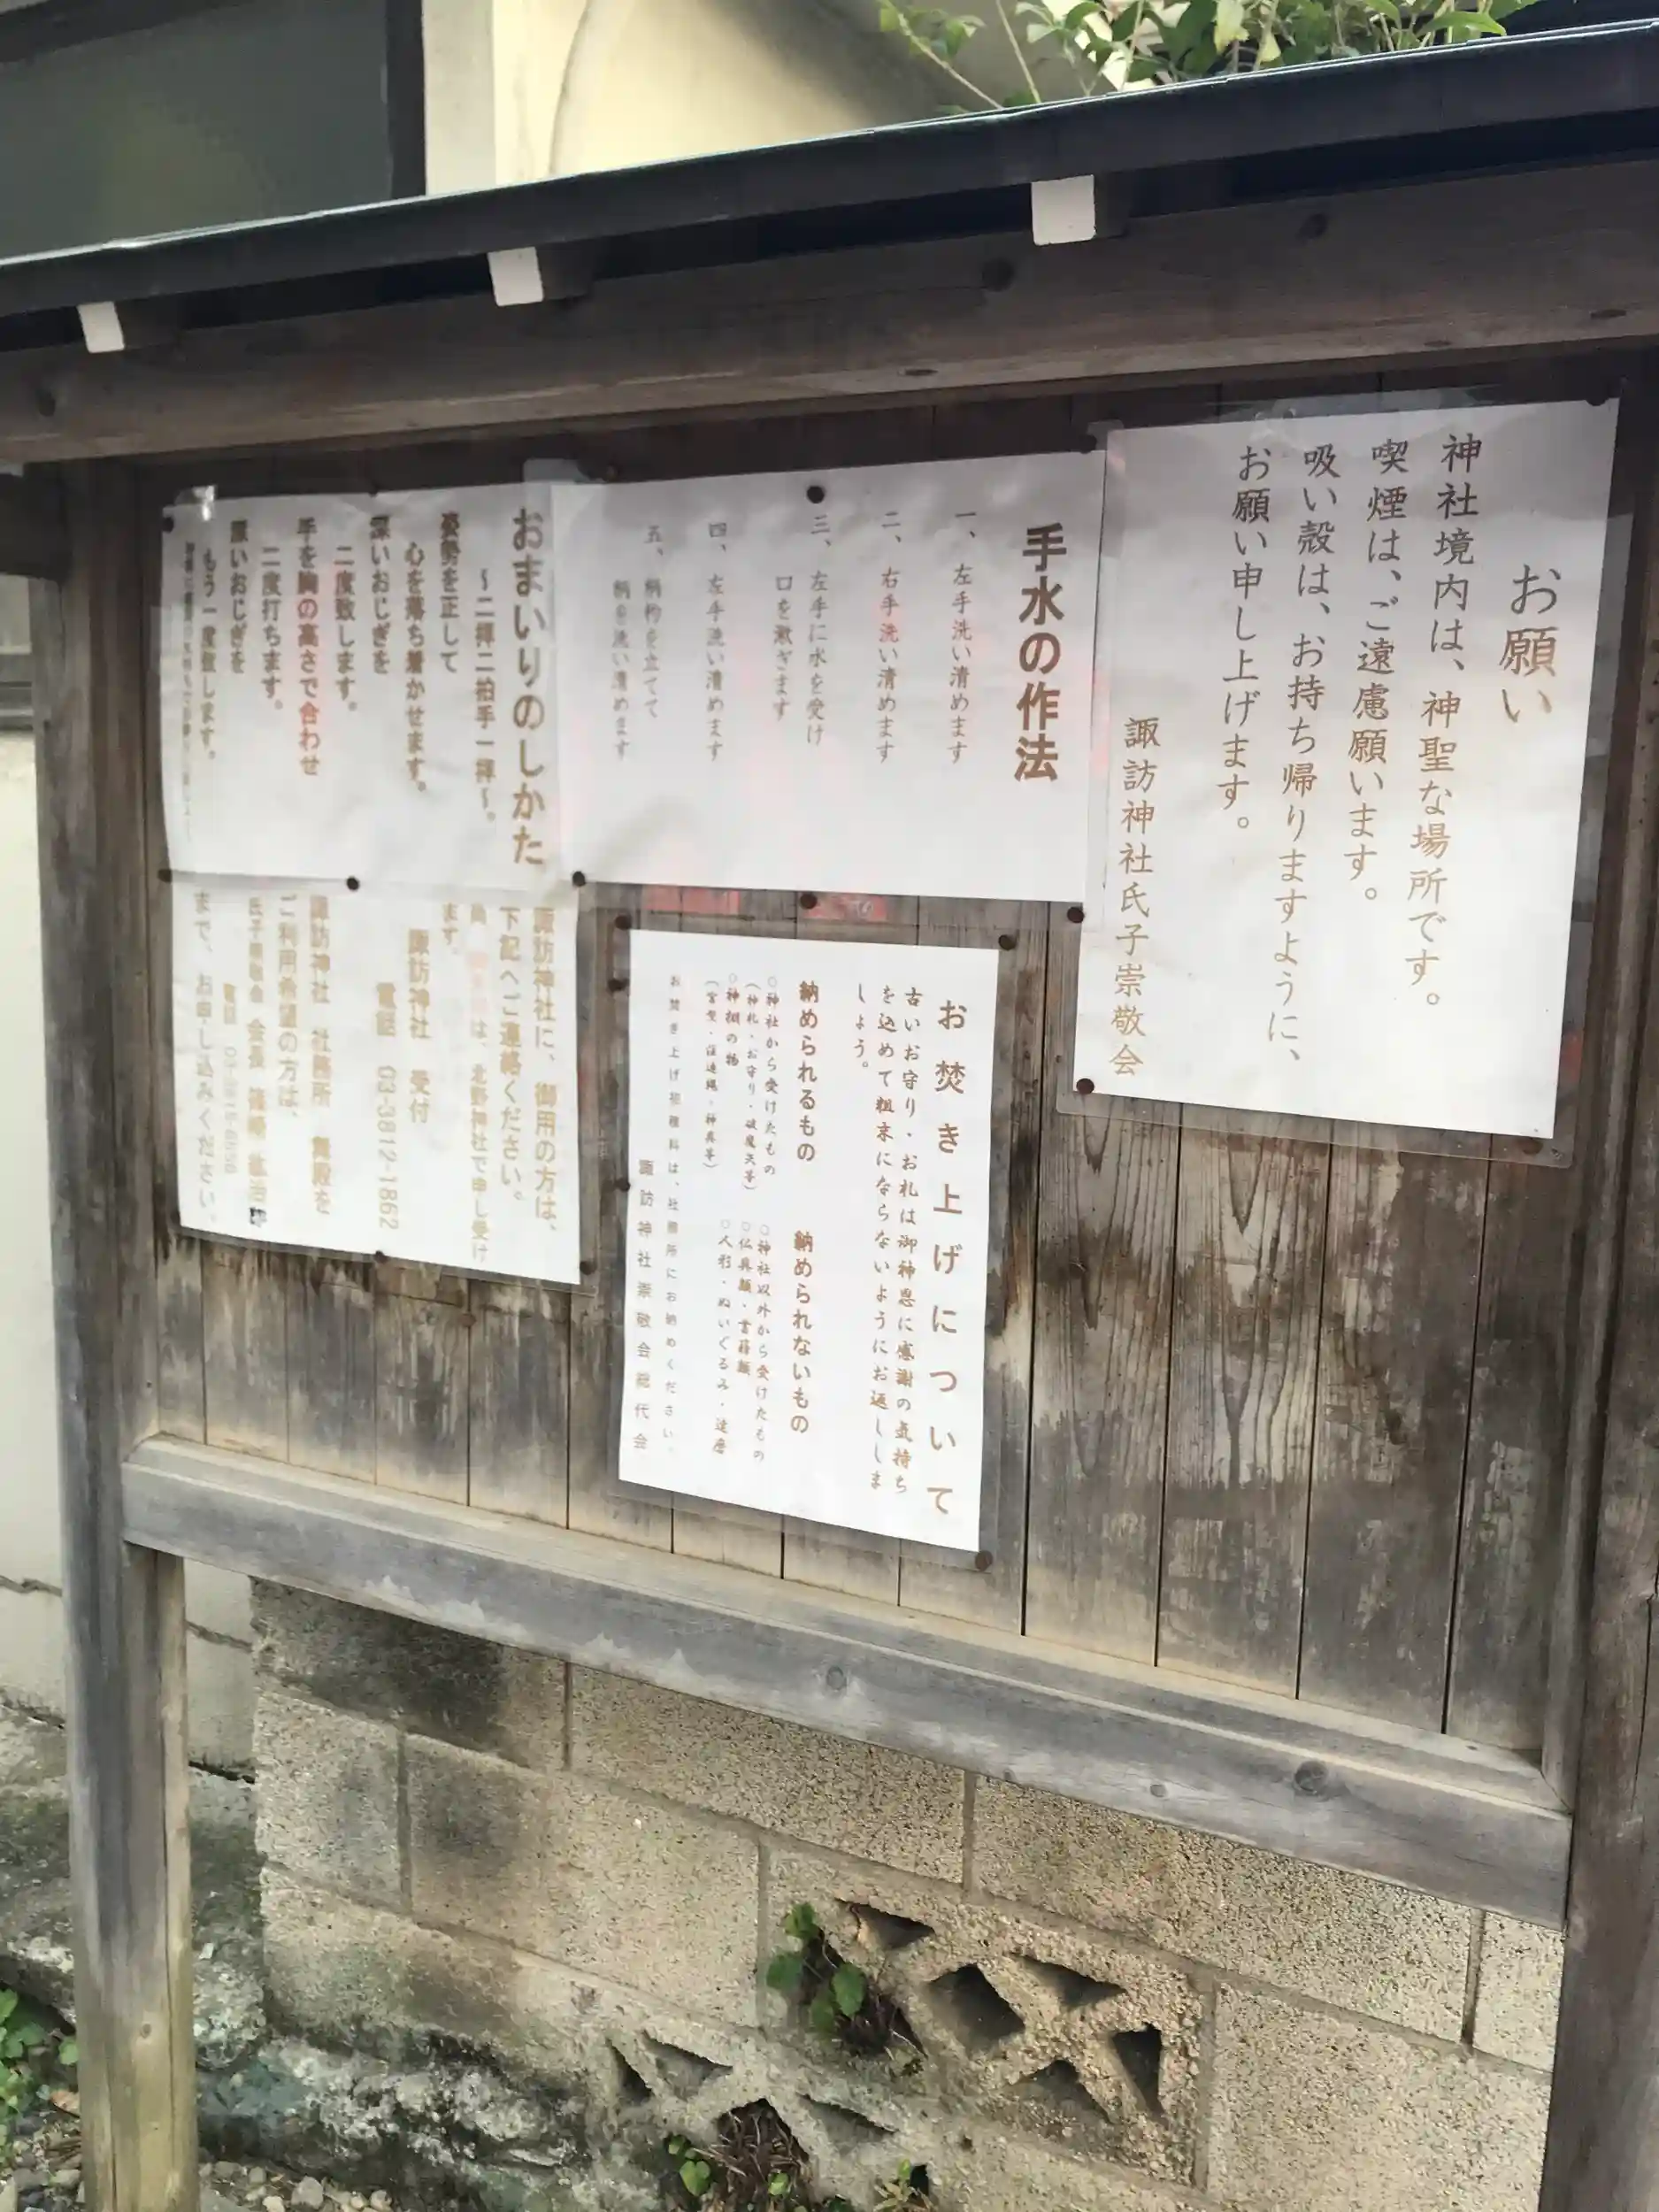 お願い
神社境内は、神聖な場所です。
喫煙は、ご遠慮願います。
吸い殻は、お持ち帰りますように、
お願い申し上げます。
諏訪神社氏子崇敬会
手水の作法
一、左手洗い清めます
二、右手洗い清めます
三、左手に水を受け
口を漱ぎます
四、左手洗い清めます
五、柄杓を立てて
柄を洗い清めます
おまいりのしかた
〜二拝二拍手一拝〜。
姿勢を正して
心を落ち着かせます。
深いおじぎを
二度致します。
手を胸の高さで合わせ
二度打ちます。
深いおじぎを
もう一度致します。
お焚き上げについて
古いお守り・お札は御神恩に感謝の気持ち
を込めて粗末にならないようにお返ししま
しょう。
納められるもの
○神社から受けたもの
(神札・お守り・破魔矢等)
○神棚の物
(宮型・注連縄・神具等)
納められないもの
○神社以外から受けたもの
○仏具類・書籍類
○人形・ぬいぐるみ・達磨
お焚き上げ初穂料は、社務所にお納めください。
諏訪神社崇敬会総代会
諏訪神社に、御用の方は、
下記へご連絡ください。
は、北野神社で申し受け
ます。
諏訪神社 受付
電話 03-3812-1862
諏訪神社 社務所 舞殿を
ご利用希望の方は、
氏子崇敬会 会長 篠崎
電話
まで、お申し込みください。